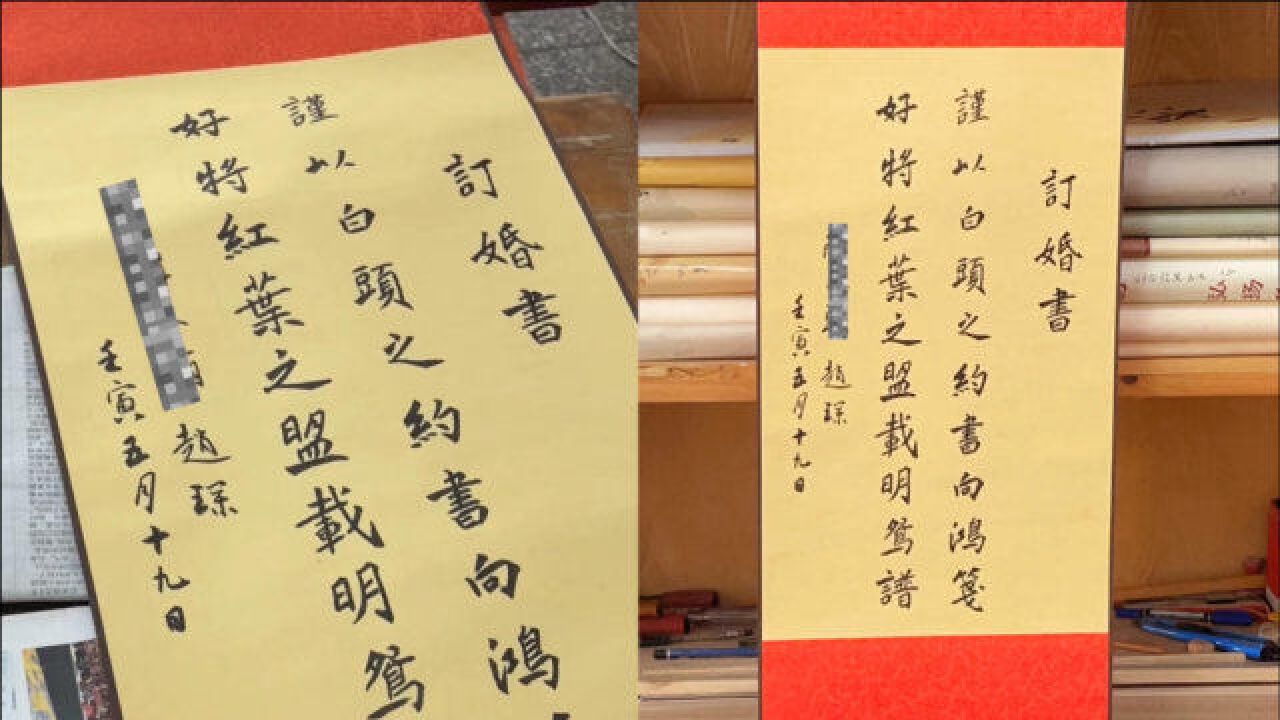 訂婚書
謹以白頭之約書向鴻
好將紅葉之盟載明鴛
趙琛
壬寅五月十九日
訂婚書
謹以白頭之約書向鴻箋
好將紅葉之盟載明鴛譜
趙琛
壬寅五月十九日